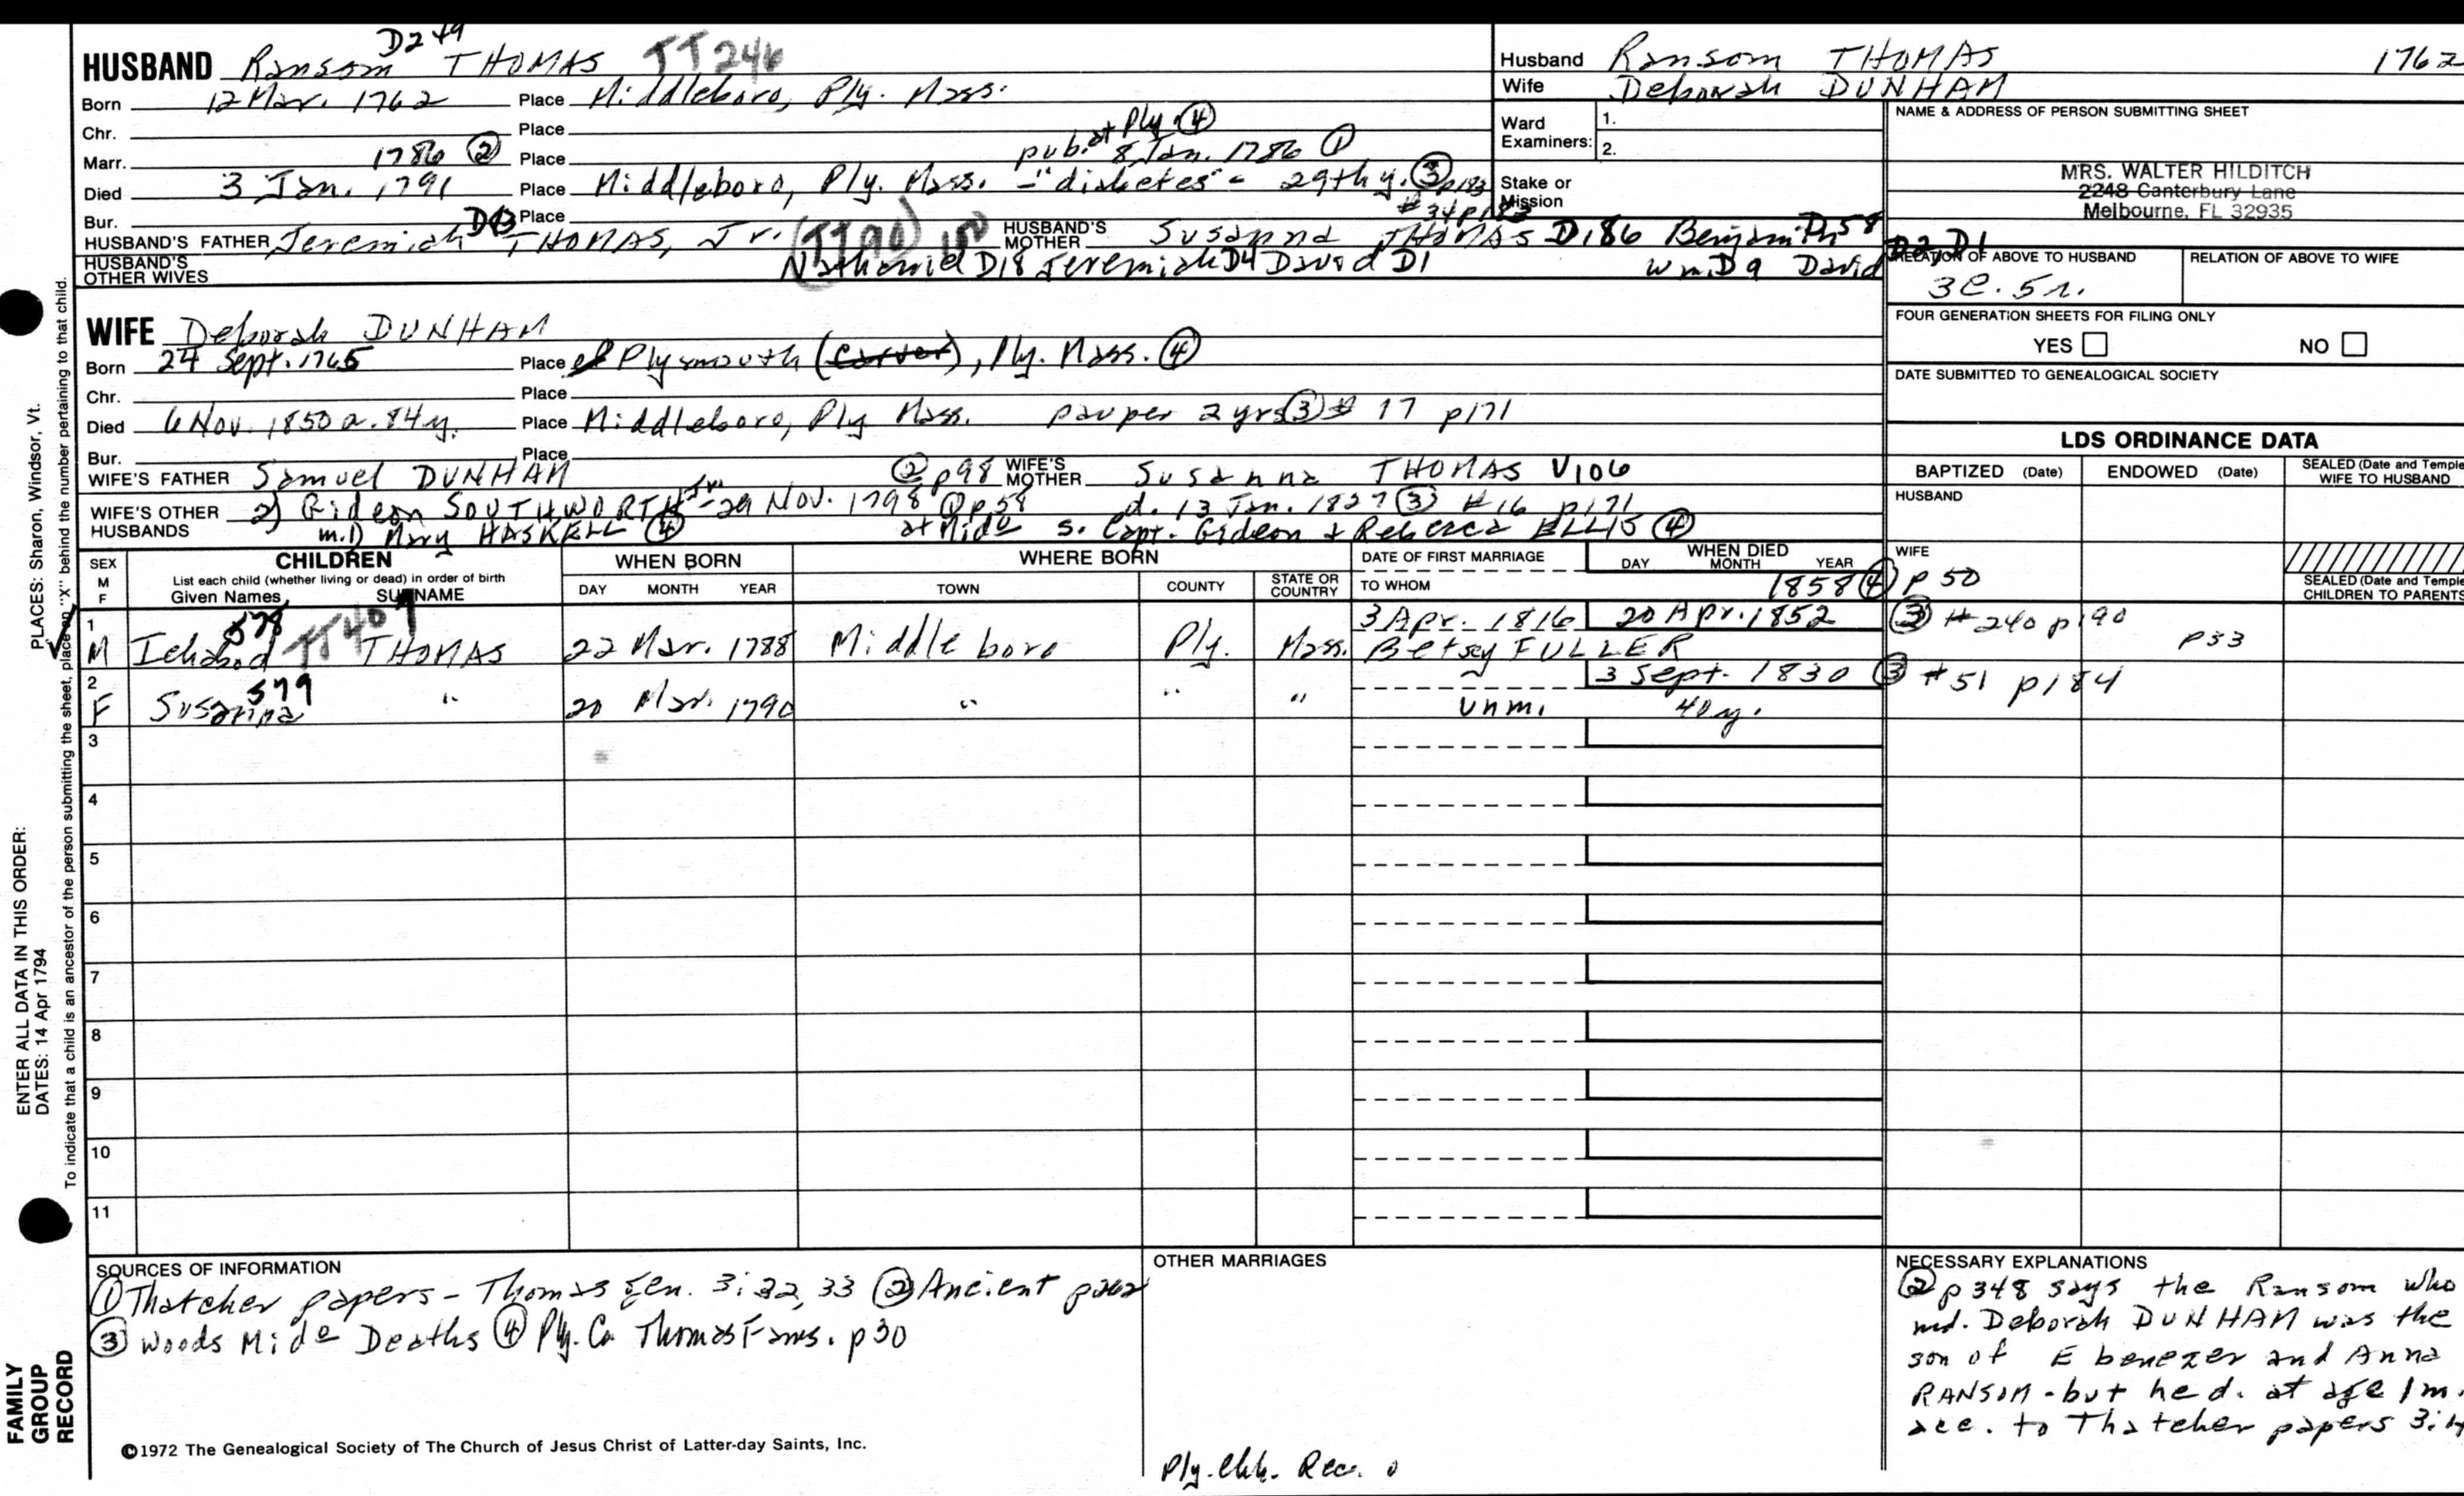 HUSBAND Ransom THOMAS D249 TT246
Born 12 Mar. 1762 Place Middleboro, Ply. Mass.
Chr. Place
pub. at Ply. ④
Marr. 1786 ② Place 8 Jan. 1786 ①
Died 3 Jan. 1791 Place Middleboro, Ply. Mass. - "diabetes" - 29th y. ③ p183
#34 p183
Bur. Place
HUSBAND'S FATHER Jeremiah THOMAS, Jr. (TT90) HUSBAND'S MOTHER Susanna THOMAS D186 Benjamin D58
HUSBAND'S OTHER WIVES Nathaniel D18 Jeremiah D4 David D1 Wm. D9 David D2, D1
Husband Ransom THOMAS 1762
Wife Deborah DUNHAM
Ward Examiners: 1.
2.
Stake or Mission
NAME & ADDRESS OF PERSON SUBMITTING SHEET
MRS. WALTER HILDITCH
2248 Canterbury Lane
Melbourne, FL 32935
RELATION OF ABOVE TO HUSBAND RELATION OF ABOVE TO WIFE
3C. 5r.
FOUR GENERATION SHEETS FOR FILING ONLY
YES NO
DATE SUBMITTED TO GENEALOGICAL SOCIETY
WIFE Deborah DUNHAM
Born 24 Sept. 1765 Place of Plymouth (Carver), Ply. Mass. ④
Chr. Place
Died 6 Nov. 1850 a. 84 y. Place Middleboro, Ply Mass. pauper 2 yrs ③ # 17 p171
Bur. Place
WIFE'S FATHER Samuel DUNHAM ② p98 WIFE'S MOTHER Susanna THOMAS V106
WIFE'S OTHER HUSBANDS 2) Gideon SOUTHWORTH Jr. - 29 Nov. 1798 ① p58 d. 13 Jan. 1827 ③ #16 p171
m.1) Mary HASKELL ④ at Mido s. Capt. Gideon & Rebecca ELLIS ④
LDS ORDINANCE DATA
BAPTIZED (Date) ENDOWED (Date) SEALED (Date and Temple) WIFE TO HUSBAND
HUSBAND
WIFE
SEALED (Date and Temple) CHILDREN TO PARENTS
SEX M F CHILDREN List each child (whether living or dead) in order of birth Given Names SURNAME
WHEN BORN DAY MONTH YEAR
WHERE BORN TOWN COUNTY STATE OR COUNTRY
DATE OF FIRST MARRIAGE TO WHOM
WHEN DIED DAY MONTH YEAR
1858 ④ p 50
1 M Ichabod 578 TT407 THOMAS 22 Mar. 1788 Middleboro Ply. Mass. 3 Apr. 1816 Betsey FULLER 20 Apr. 1852 ③ #240 p190 p33
2 F Susanna 579 " 20 Mar. 1790 " " " unm. 3 Sept. 1830 40 y. ③ #51 p184
3
4
5
6
7
8
9
10
11
SOURCES OF INFORMATION
① Thatcher papers - Thomas gen. 3:32,33 ② Ancient p262
③ Woods Mido Deaths ④ Ply. Co. Thomas Fams. p30
©1972 The Genealogical Society of The Church of Jesus Christ of Latter-day Saints, Inc.
OTHER MARRIAGES
Ply. chh. Rec.
NECESSARY EXPLANATIONS
② p348 says the Ransom who
md. Deborah DUNHAM was the
son of Ebenezer and Anna
RANSOM - but he d. at age 1 m.
acc. to Thatcher papers 3:4
PLACES: Sharon, Windsor, Vt.
ENTER ALL DATA IN THIS ORDER:
DATES: 14 Apr 1794
To indicate that a child is an ancestor of the person submitting the sheet, place an "X" behind the number pertaining to that child.
FAMILY
GROUP
RECORD